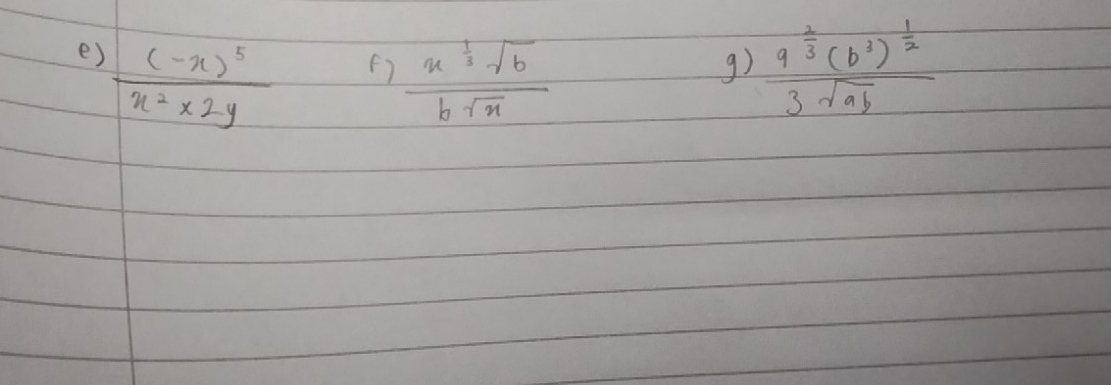 e) (-x)^5 / (x^2 × 2y) f) x^(1/3) √b / (b √x) g) 9^(2/3) (b^3)^(1/2) / (3 √ab)